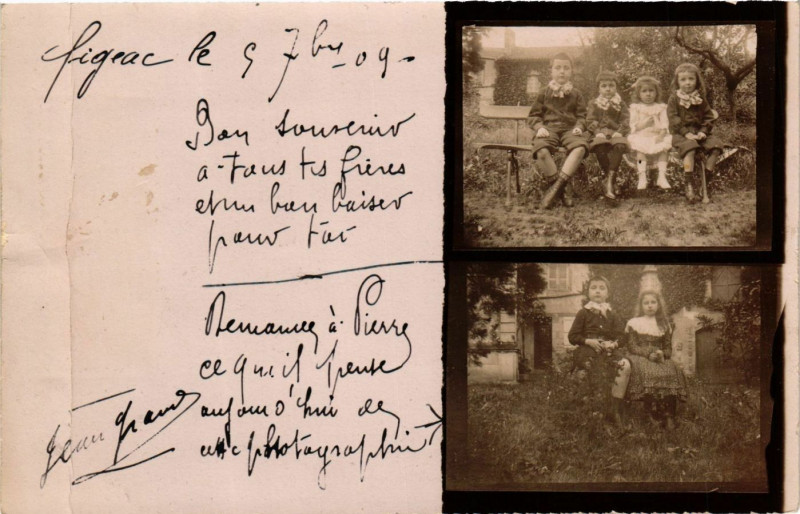 Figeac le 5 7bre 09 -
Bon souvenir
a-tous tes frères
et un bon baiser
pour toi
Demandez à Pierre
ce qu'il pense
aujourd'hui de
cette photographie
Jean